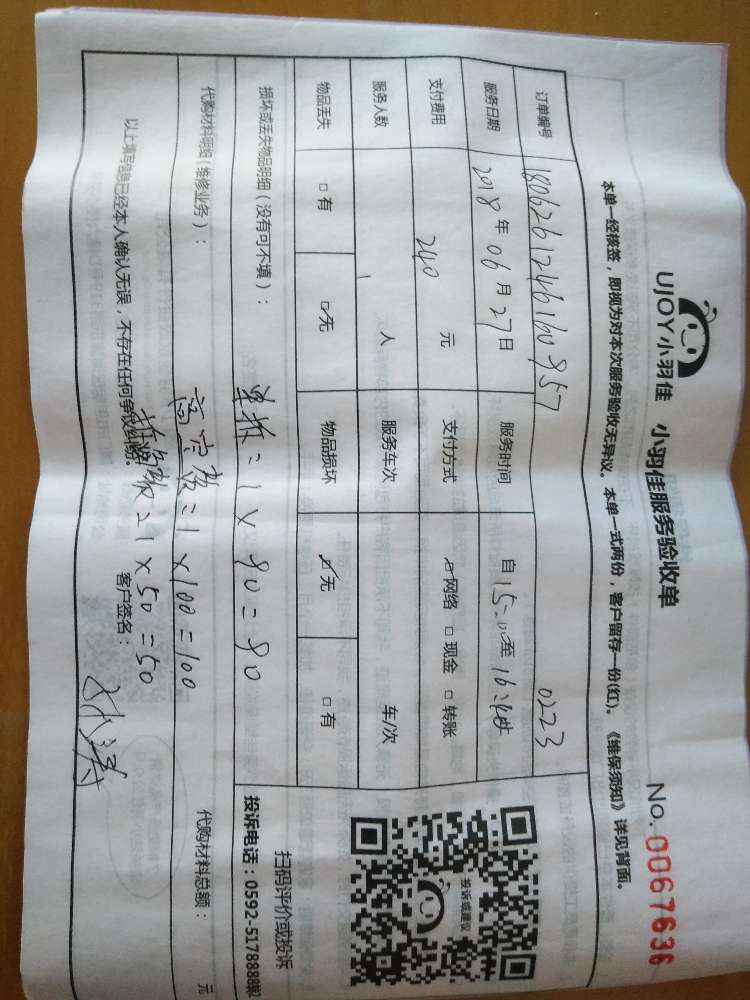 UJOY小羽佳 小羽佳服务验收单 No.0067636
本单一经核签，即视为对本次服务验收无异议。本单一式两份，客户留存一份(红)。《维保须知》详见背面。
订单编号 1806261246160957 0223
服务日期 2018年06月27日 服务时间 自15:00至16:
支付费用 240 元 支付方式 ☑网络 □现金 □转账
服务人数 1 人 服务车次 车/次
物品丢失 □有 ☑无 物品损坏 ☑无 □有
损坏或丢失物品明细（没有可不填）： 单拆：1×90=90
代购材料明细(维修业务)： 高空费：1×100=100 代购材料总额： 元
1×50=50
以上填写信息已经本人确认无误，不存在任何争议纠纷。 客户签名：
投诉或建议
扫码评价或投诉
投诉电话：0592-5178888转